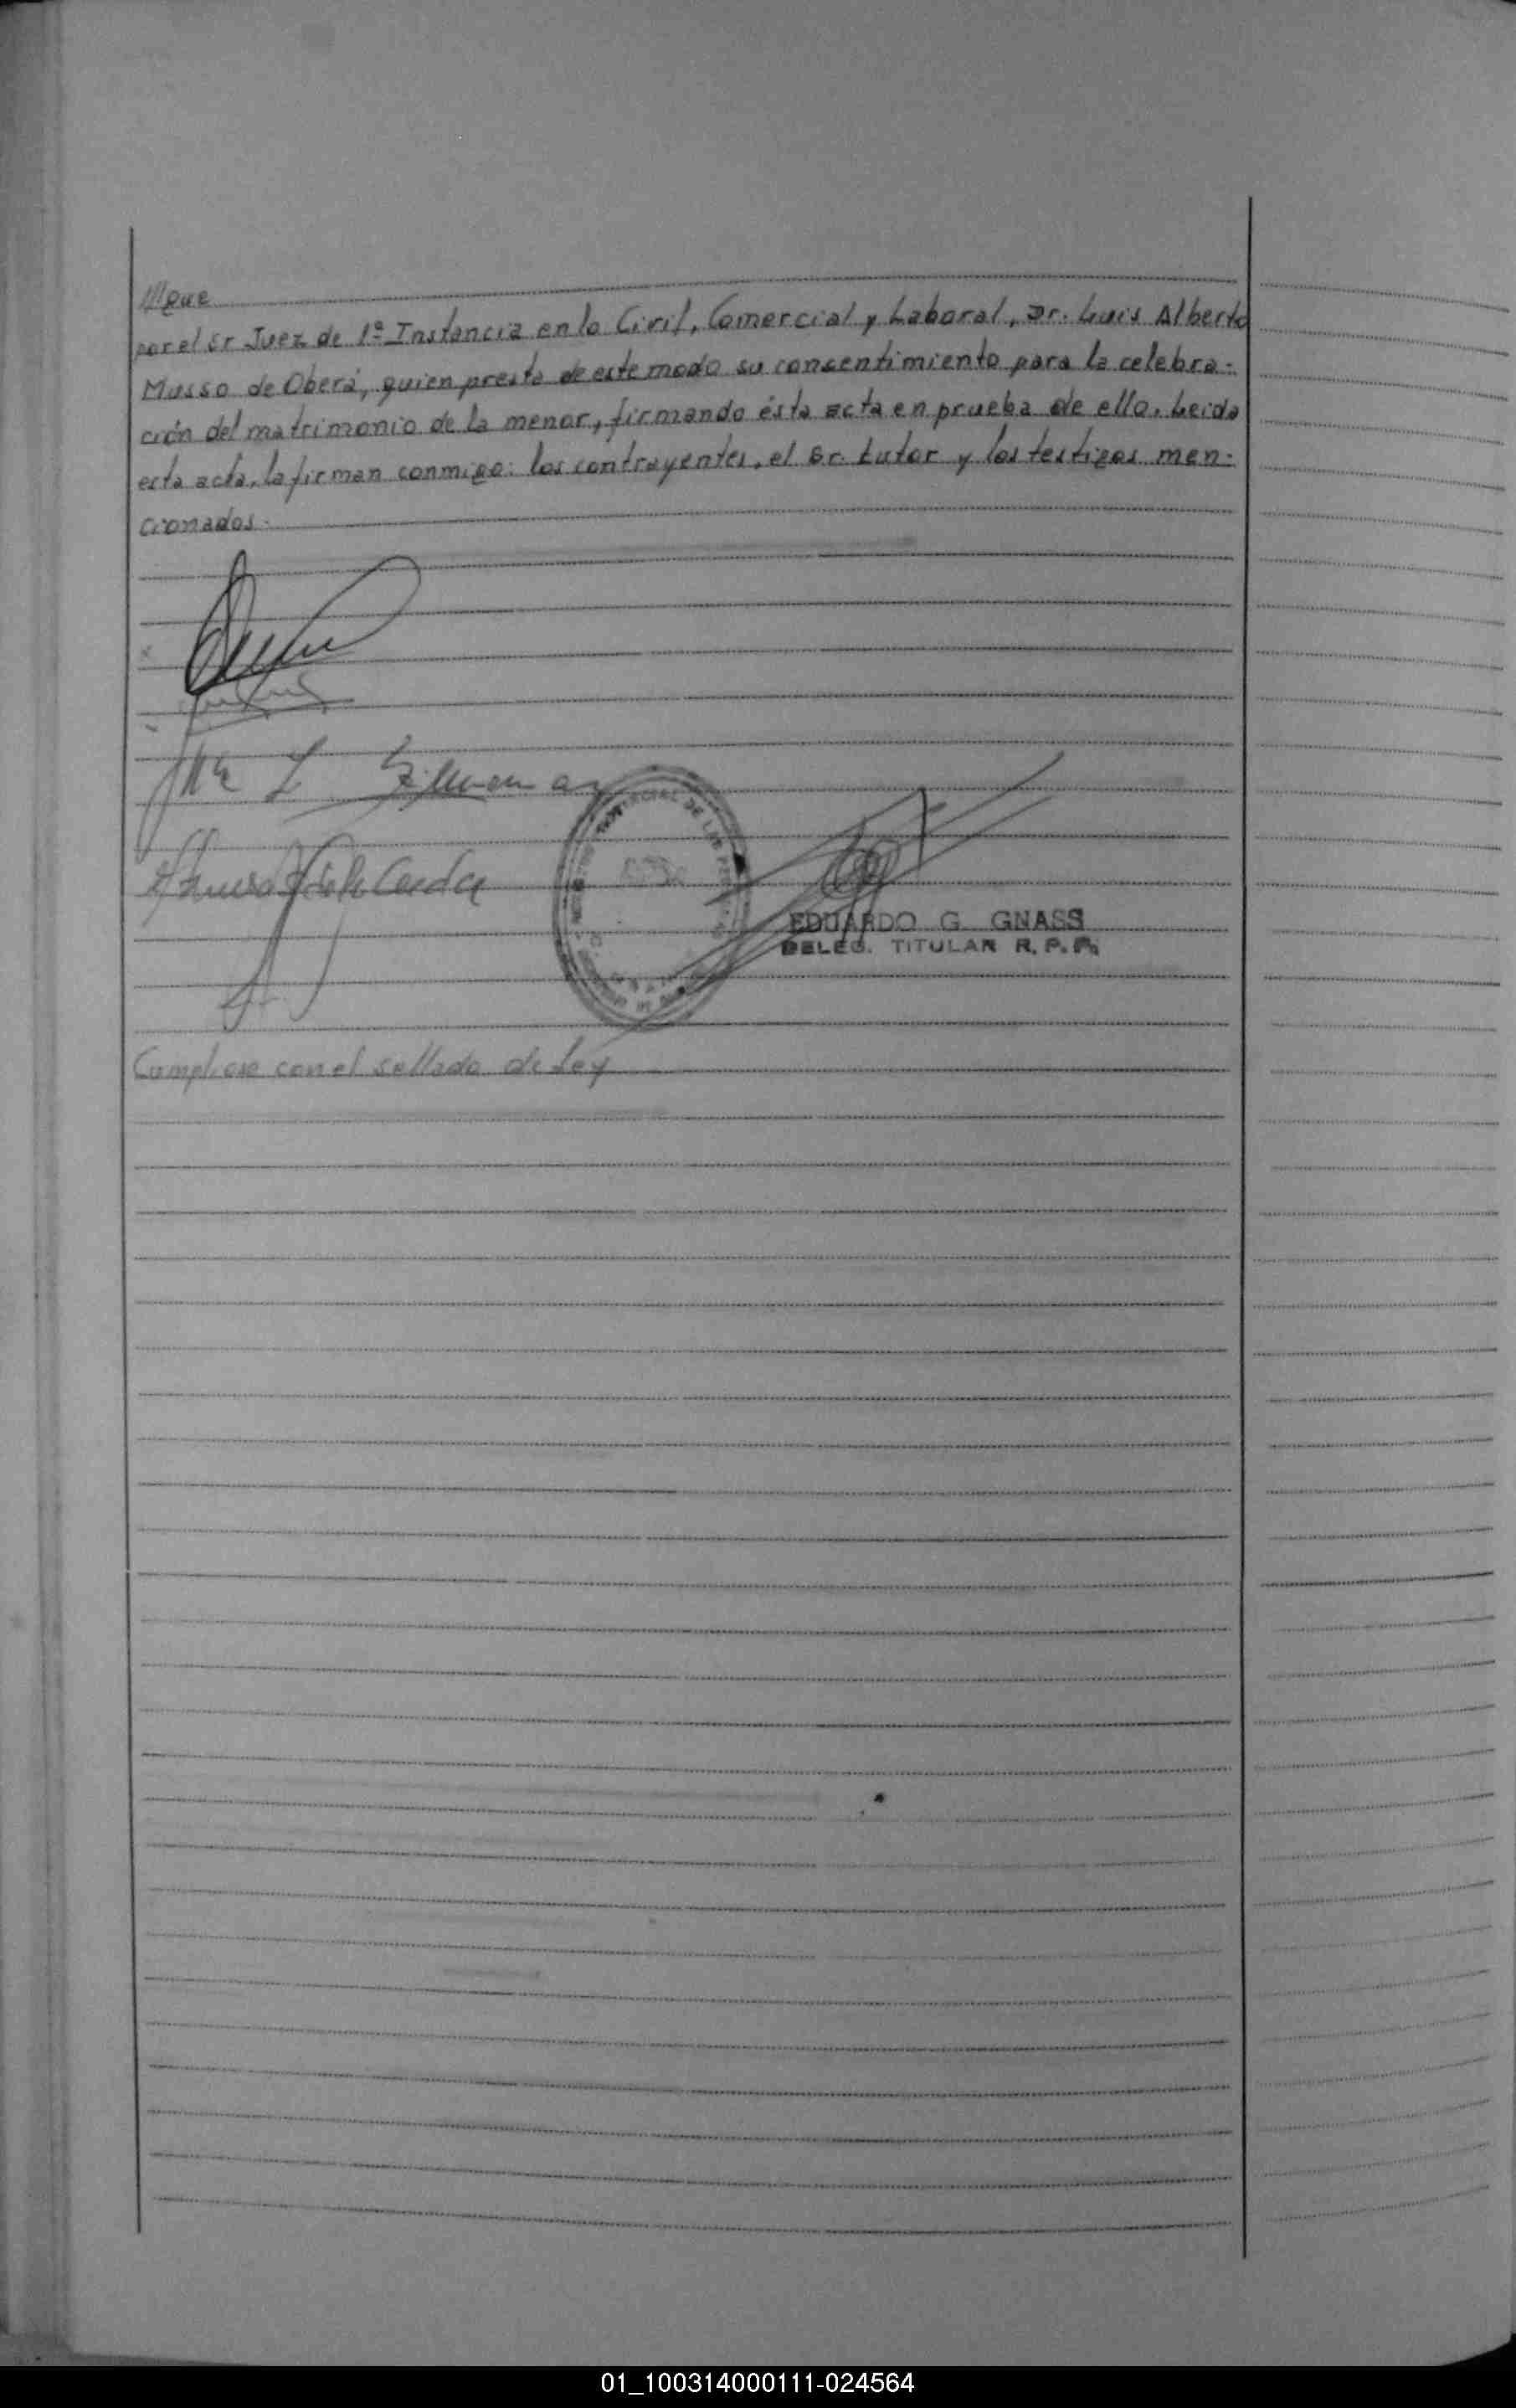 ///que
por el Sr Juez de 1ª Instancia en lo Civil, Comercial y Laboral, Dr. Luis Alberto
Musso de Oberá, quien presta de este modo su consentimiento para la celebra-
ción del matrimonio de la menor, firmando ésta acta en prueba de ello. Leida
esta acta, la firman conmigo: los contrayentes, el Sr. tutor y los testigos men-
cionados.-
EDUARDO G. GNASS
DELEG. TITULAR R. P. P.
Cumplióse con el sellado de Ley
01_100314000111-024564